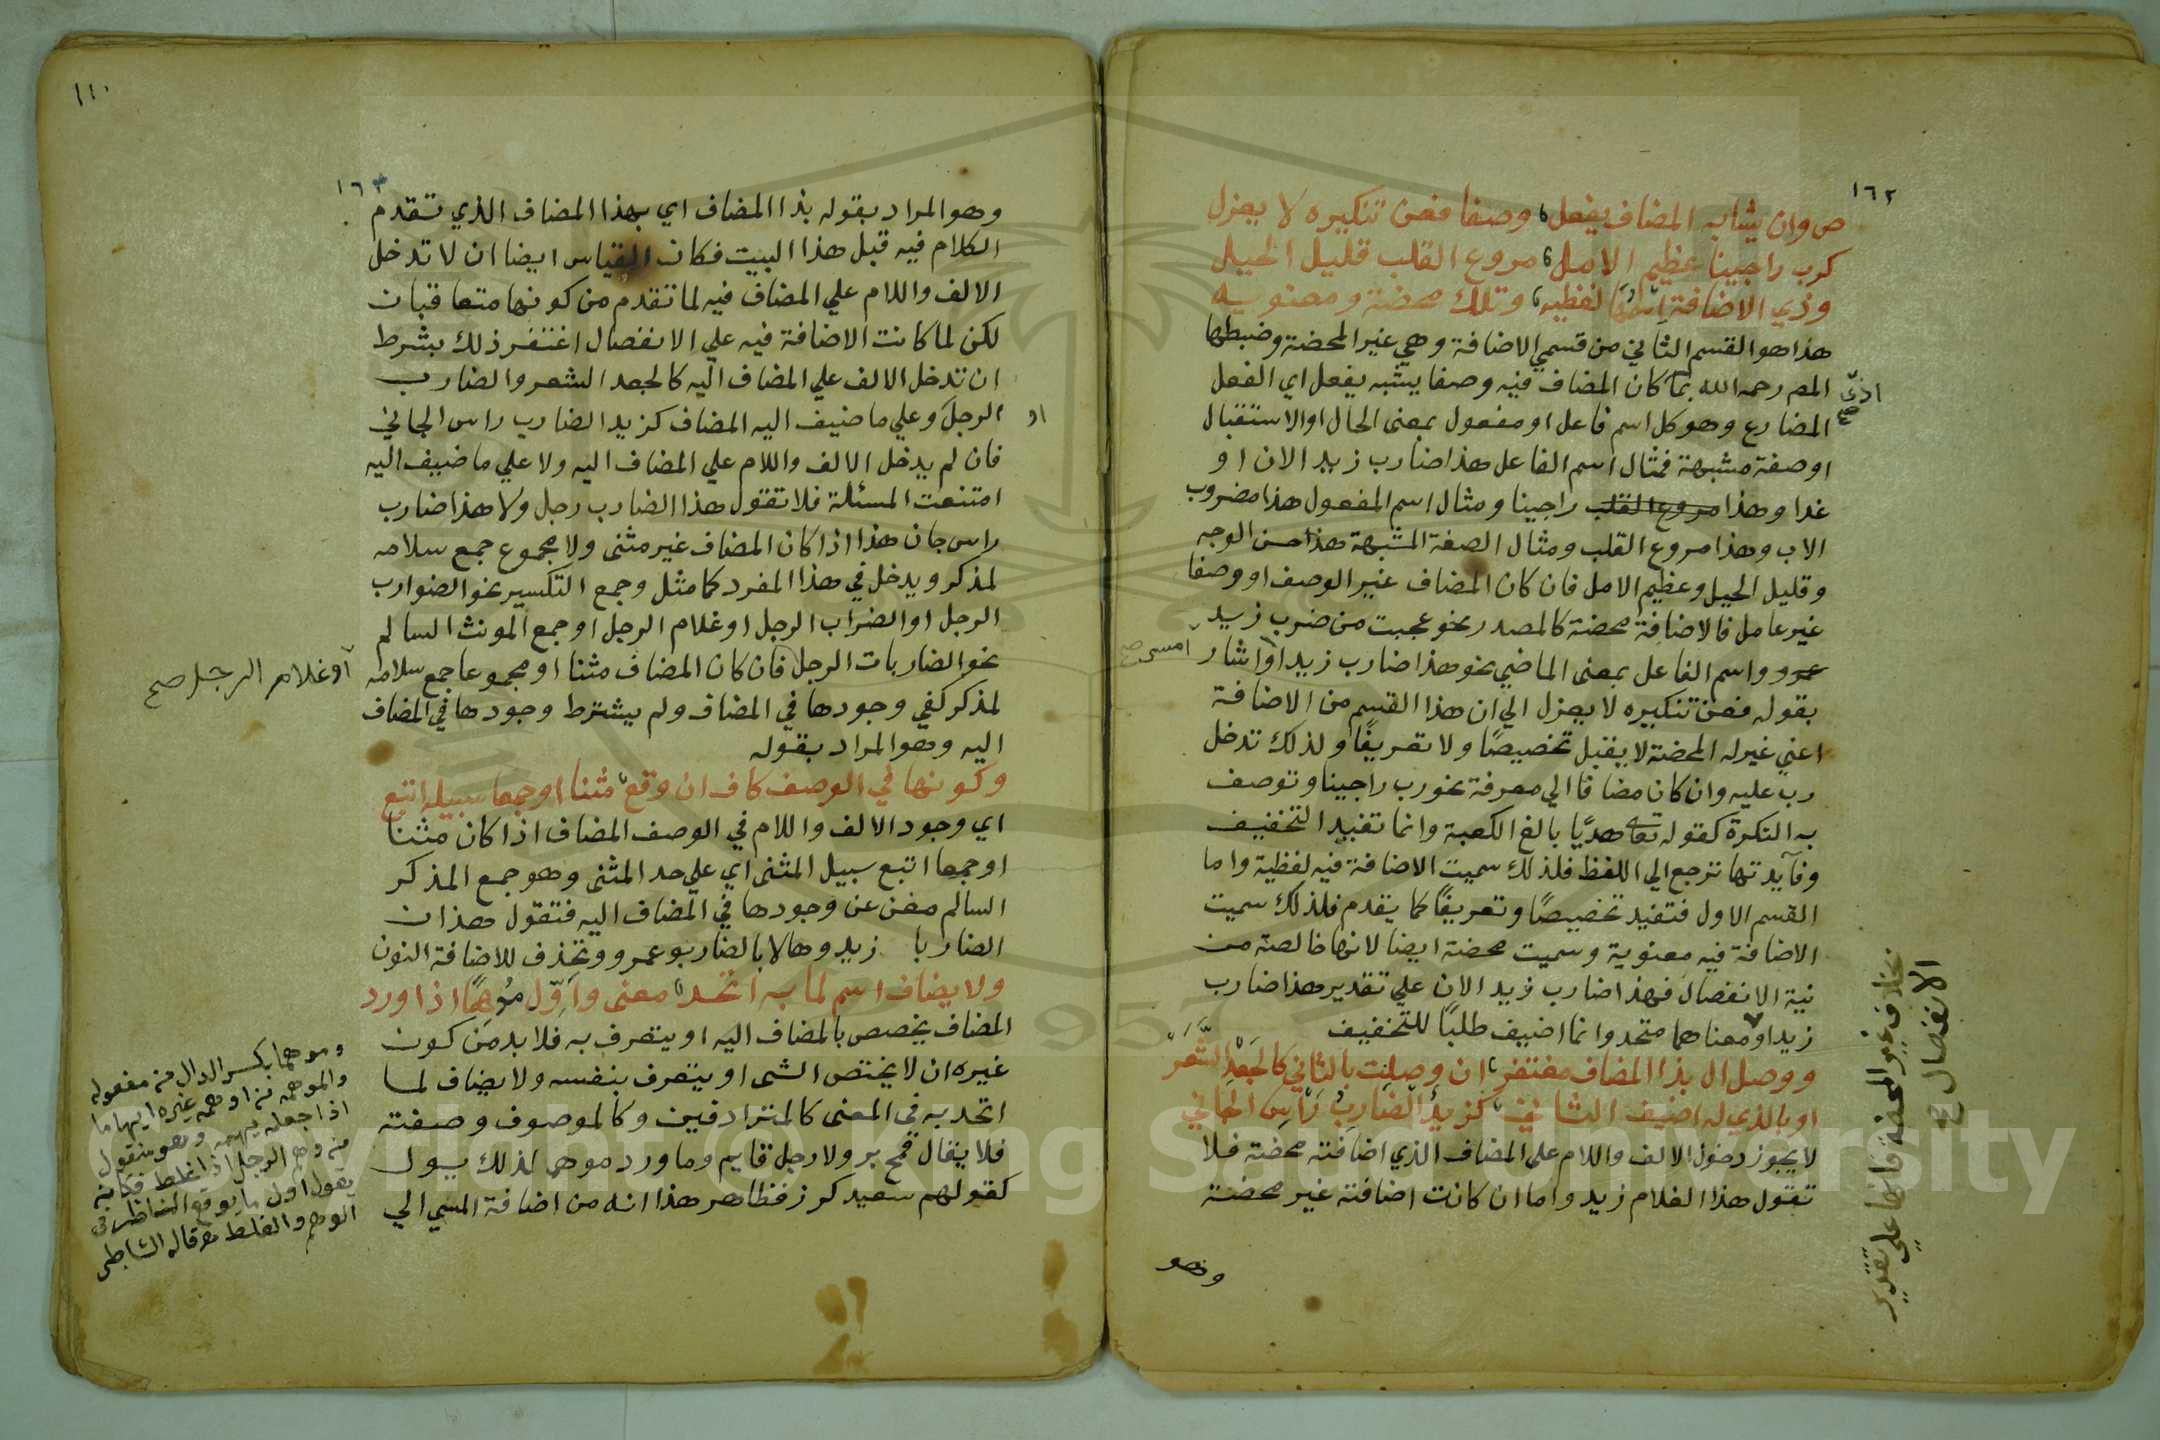 ١٦٢
ص وان يشابه المضاف يفعل وصفا فعن تنكيره لا يعزل
كرب راجينا عظيم الامل مروع القلب قليل الحيل
وذي الاضافة اسمها لفظيه وتلك محضة ومعنويه
هذا هو القسم الثاني من قسمي الاضافة وهي غير المحضة وضبطها
المص رحمه الله بما كان المضاف فيه وصفا يشبه يفعل اي الفعل
المضارع وهو كل اسم فاعل او مفعول بمعنى الحال او الاستقبال
او صفة مشبهة فمثال اسم الفاعل هذا ضارب زيد الان او
غدا وهذا مروع القلب راجينا ومثال اسم المفعول هذا مضروب
الاب وهذا مروع القلب ومثال الصفة المشبهة هذا حسن الوجه
وقليل الحيل وعظيم الامل فان كان المضاف غير الوصف او وصفا
غير عامل فالاضافة محضة كالمصدر نحو عجبت من ضرب زيد
عمرو واسم الفاعل بمعنى الماضي نحو هذا ضارب زيد او اشار
امس صح
بقوله فعن تنكيره لا يعزل الي ان هذا القسم من الاضافة
اعني غير المحضة لا يقبل تخصيصا ولا تعريفا ولذلك تدخل
رب عليه وان كان مضافا الي معرفة نحو رب راجينا وتوصف
به النكرة كقوله تعالى هديا بالغ الكعبة وانما تفيد التخفيف
وفآيدتها ترجع الي اللفظ فلذلك سميت الاضافة فيه لفظية واما
القسم الاول فتفيد تخصيصا وتعريفا كما يقدم فلذلك سميت
الاضافة فيه معنوية وسميت محضة ايضا لانها خالصة من
نية الانفصال فهذا ضارب زيد الان علي تقدير هذا ضارب
زيدا ومعناهما متحد وانما اضيف طلبا للتخفيف
ووصل ال بذا المضاف مغتفر ان وصلت بالثاني كالجعد الشعر
او بالذي له اضيف الثاني كزيد الضارب راس الجاني
لا يجوز دخول الالف واللام على المضاف الذي اضافته محضة فلا
تقول هذا الغلام زيد واما ان كانت اضافته غير محضة
وهو
بخلاف غير المحضة فانها علي تقدير
الانفصال صح
١١٠
١٦٣
وهو المراد بقوله بذا المضاف اي بهذا المضاف الذي تقدم
الكلام فيه قبل هذا البيت فكان القياس ايضا ان لا تدخل
الالف واللام علي المضاف فيه لما تقدم من كونها متعاقبان
لكن لما كانت الاضافة فيه علي الانفصال اغتفر ذلك بشرط
ان تدخل الالف علي المضاف اليه كالجعد الشعر والضارب
الرجل وعلي ما ضيف اليه المضاف كزيد الضارب راس الجاني
او
فان لم يدخل الالف واللام علي المضاف اليه ولا علي ما ضيف اليه
امتنعت المسئلة فلا تقول هذا الضارب رجل ولا هذا ضارب
راس جان هذا اذا كان المضاف غير مثنى ولا مجموع جمع سلامه
لمذكر ويدخل في هذا المفرد كما مثل وجمع التكسير نحو الضوارب
الرجل او الضراب الرجل او غلام الرجل او جمع المونث السالم
نحو الضاربات الرجل فان كان المضاف مثنا او مجموعا جمع سلامه
او غلام الرجل صح
لمذكر كفي وجودها في المضاف ولم يشترط وجودها في المضاف
اليه وهو المراد بقوله
وكونها في الوصف كاف ان وقع مثنا او جمعا سبيله اتبع
اي وجود الالف واللام في الوصف المضاف اذا كان مثنا
او جمعا اتبع سبيل المثنى اي علي حد المثنى وهو جمع المذكر
السالم مغن عن وجودها في المضاف اليه فتقول هذان
الضاربا زيد وهالا بالضاربو عمرو وتحذف للاضافة النون
ولا يضاف اسم لما به اتحد معنى واول موهما اذا ورد
المضاف يخصص بالمضاف اليه او يتعرف به فلا بد من كون
غيره ان لا يختص الشى او يتعرف بنفسه ولا يضاف لما
اتحد به في المعنى كالمترادفين وكالموصوف وصفته
فلا يقال قمح بر ولا رجل قايم وما ورد موهما لذلك يول
كقولهم سعيد كرز فظاهر هذا انه من اضافة المسمي الي
وموهما بكسر الدال من مفعوله
والموهم من اوهم غيره ايهاما
اذا جعله يهم وهو منقول
من وهم الرجل اذا غلط فكانه
يقول اول ما يوقع الناظر في
الوهم والغلط قاله الشاطبي